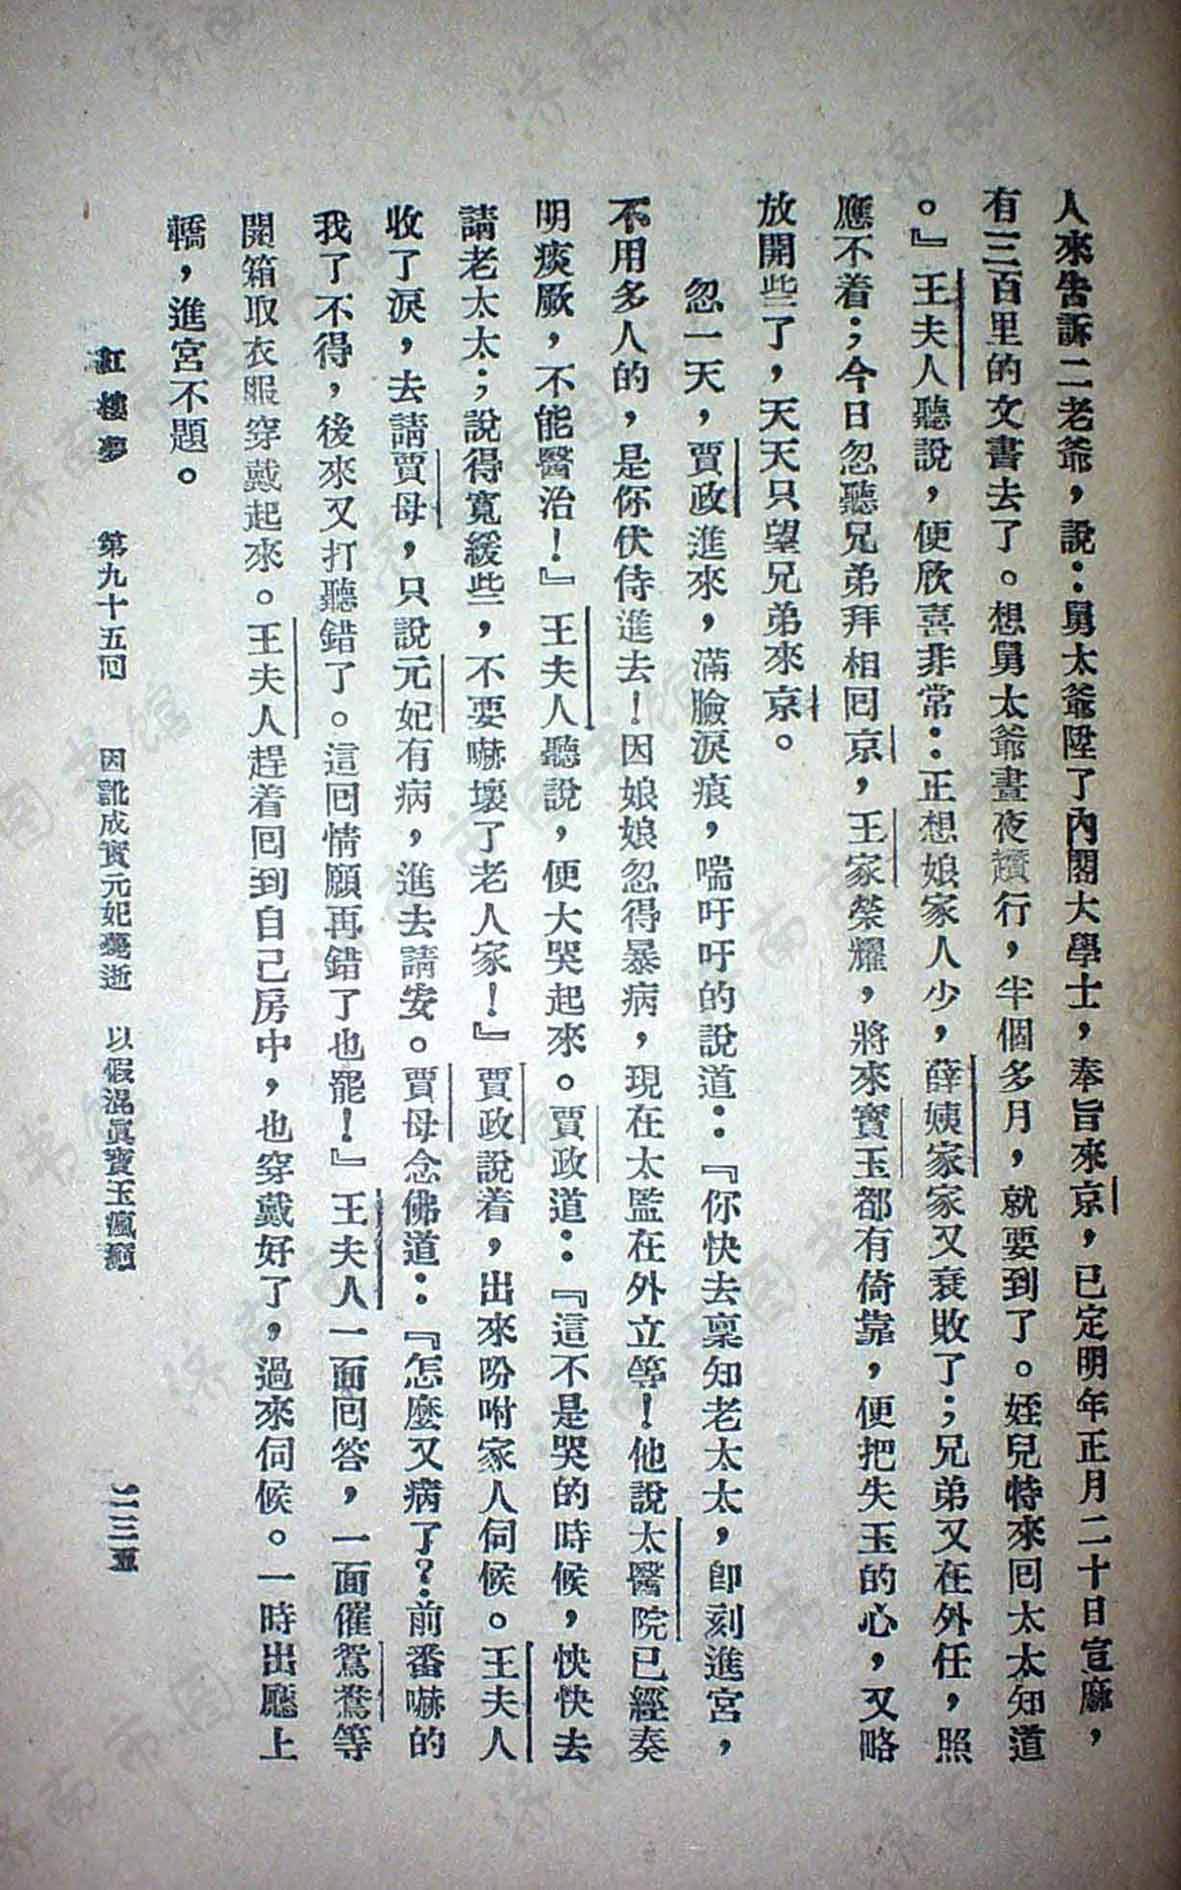 人來告訴二老爺，說：舅太爺陞了內閣大學士，奉旨來京，已定明年正月二十日宣麻，
有三百里的文書去了。想舅太爺晝夜趲行，半個多月，就要到了。姪兒特來回太太知道
。』王夫人聽說，便欣喜非常：正想娘家人少，薛姨家家又衰敗了；兄弟又在外任，照
應不着；今日忽聽兄弟拜相回京，王家榮耀，將來寶玉都有倚靠，便把失玉的心，又略
放開些了，天天只望兄弟來京。
忽一天，賈政進來，滿臉淚痕，喘吁吁的說道：『你快去稟知老太太，卽刻進宮，
不用多人的，是你伏侍進去！因娘娘忽得暴病，現在太監在外立等！他說太醫院已經奏
明痰厥，不能醫治！』王夫人聽說，便大哭起來。賈政道：『這不是哭的時候，快快去
請老太太；說得寬緩些，不要嚇壞了老人家！』賈政說着，出來吩咐家人伺候。王夫人
收了淚，去請賈母，只說元妃有病，進去請安。賈母念佛道：『怎麼又病了？前番嚇的
我了不得，後來又打聽錯了。這回情願再錯了也罷！』王夫人一面回答，一面催鴛鴦等
開箱取衣服穿戴起來。王夫人趕着回到自己房中，也穿戴好了，過來伺候。一時出廳上
轎，進宮不題。
紅樓夢　第九十五回　因訛成實元妃薨逝　以假混眞寶玉瘋癲
濟南市图书馆